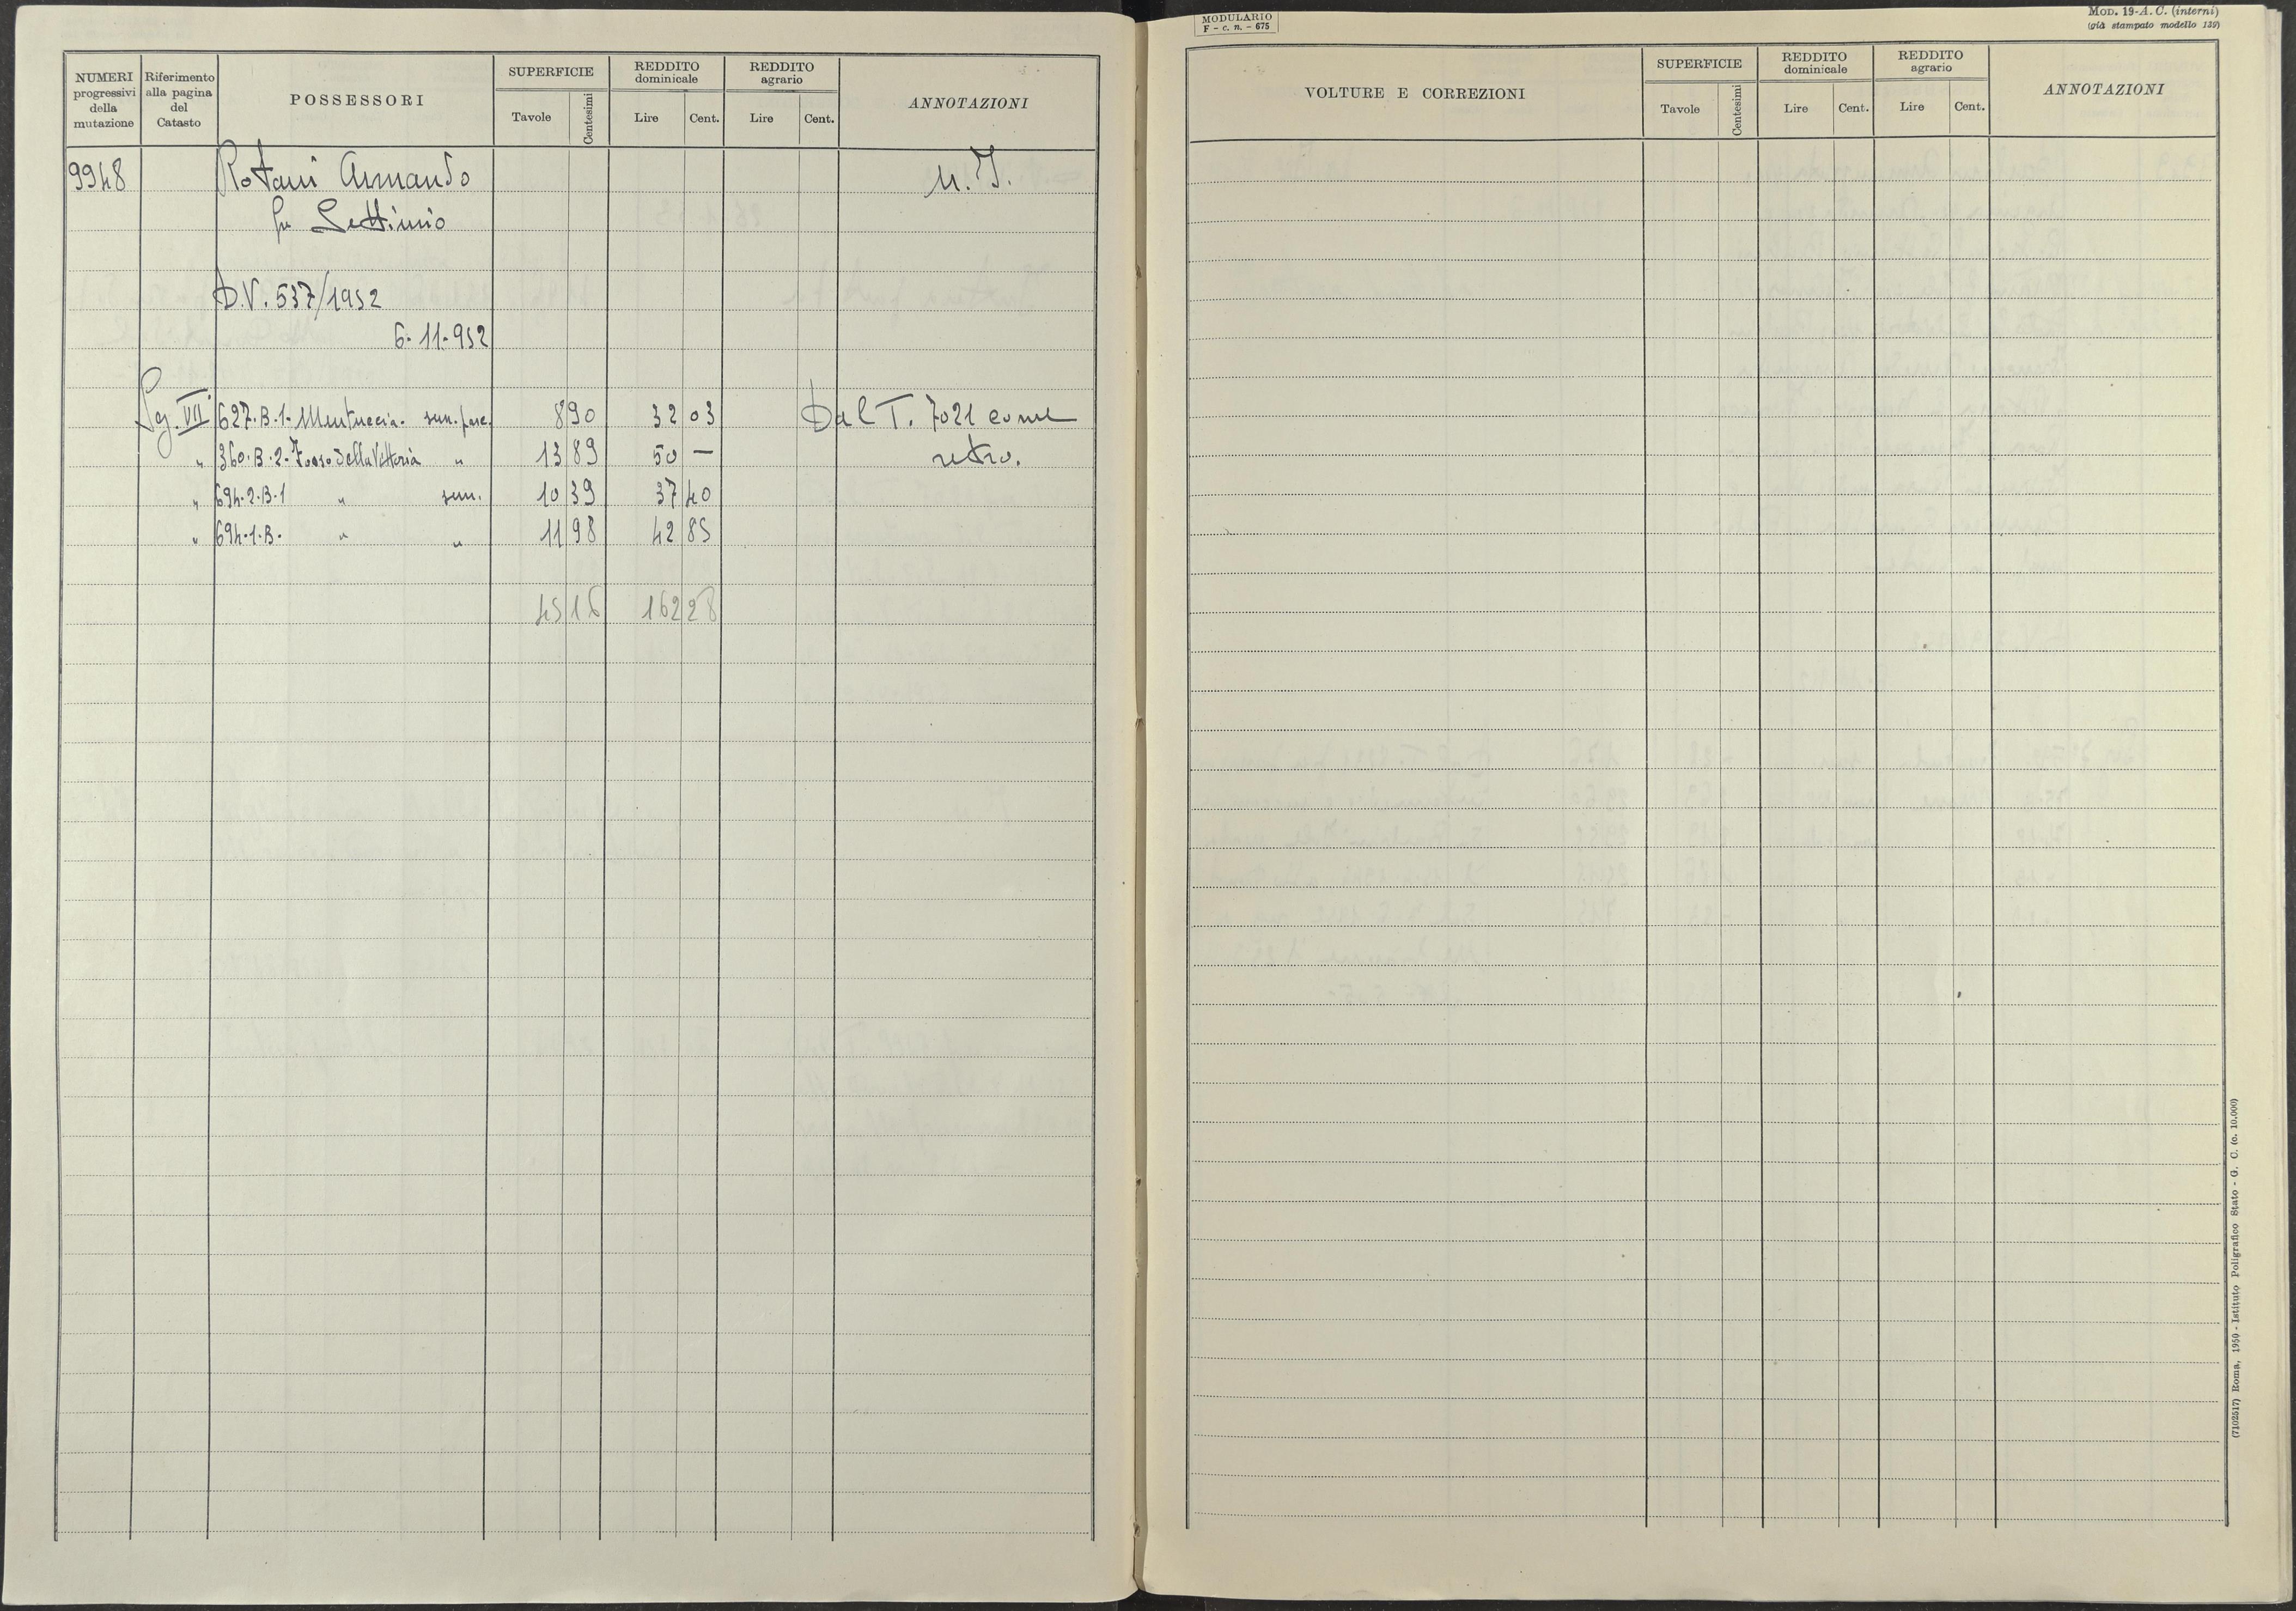 NUMERI progressivi della mutazione
Riferimento alla pagina del Catasto
POSSESSORI
SUPERFICIE
Tavole Centesimi
REDDITO dominicale
Lire Cent.
REDDITO agrario
Lire Cent.
ANNOTAZIONI
9948 Rotani Armando n. I.
fu Settimio
D.V. 537/1952
6-11-952
Sez. VII 627-B-1- Mentuccia- sem. pasc. 8 90 32 03 Dal T. 7021 come
" 360-B-2- Fosso della Vittoria " 13 89 50 — retro.
" 694-2-B-1 " sem. 10 39 37 40
" 694-1-B- " " 11 98 42 85
45 16 162 28
MODULARIO
F - c. n. - 675
MOD. 19-A. C. (interni)
(già stampato modello 139)
VOLTURE E CORREZIONI
SUPERFICIE
Tavole Centesimi
REDDITO dominicale
Lire Cent.
REDDITO agrario
Lire Cent.
ANNOTAZIONI
(7102517) Roma, 1950 - Istituto Poligrafico Stato - G. C. (c. 10.000)